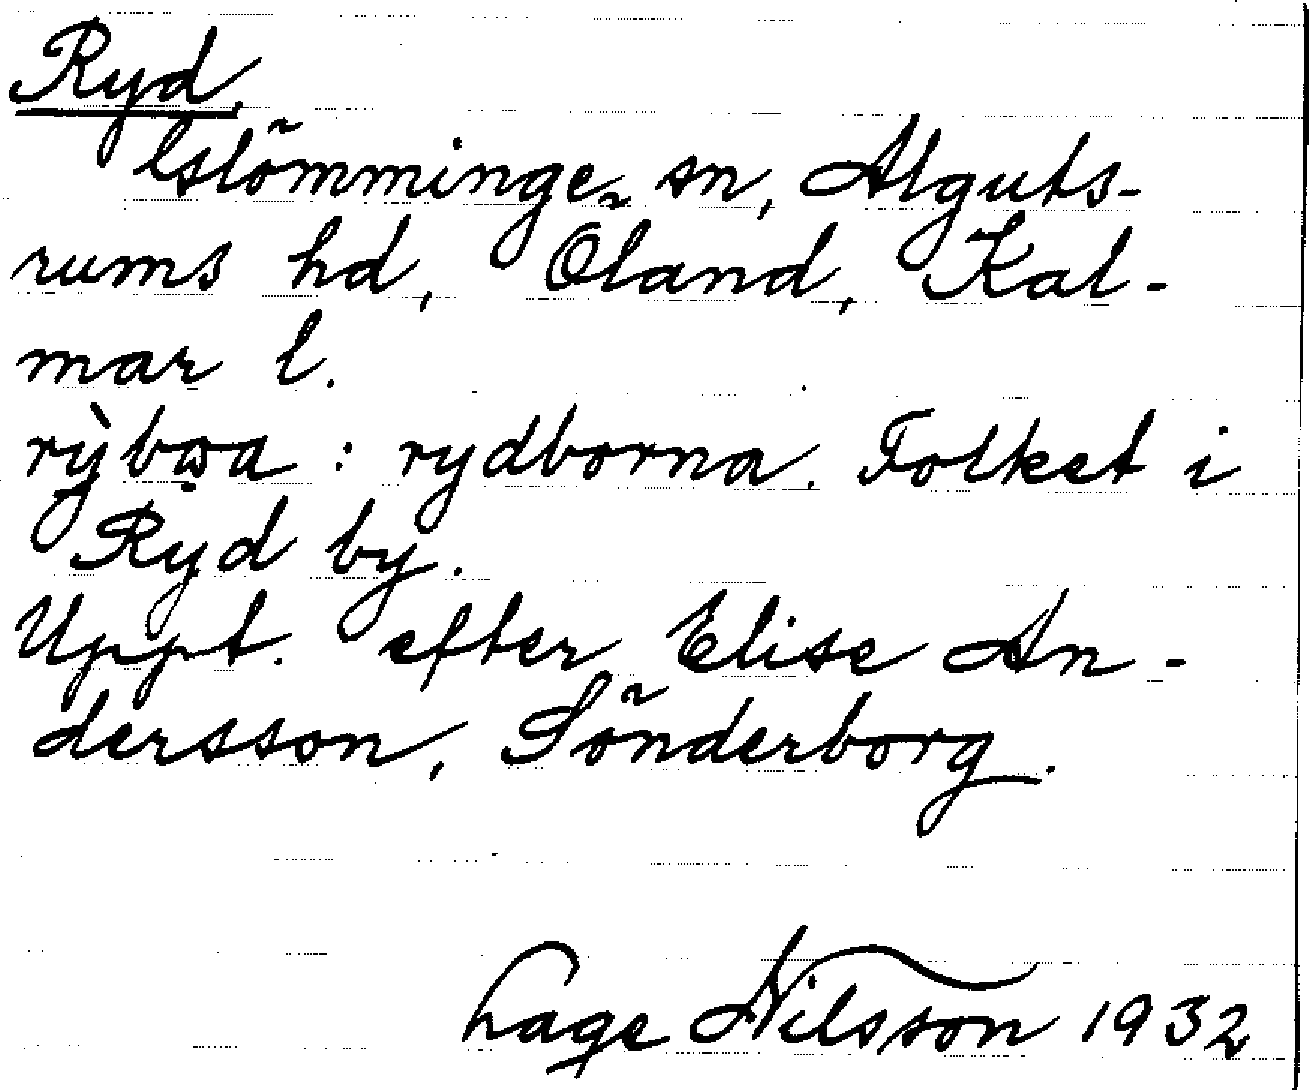 Ryd.
Glömminge sn, Alguts-
rums hd, Öland, Kal-
mar l.
: rydborna. Folket i
Ryd by.
Uppt. efter Elise An-
dersson, Sönderborg.
Hage Nilsson 1932